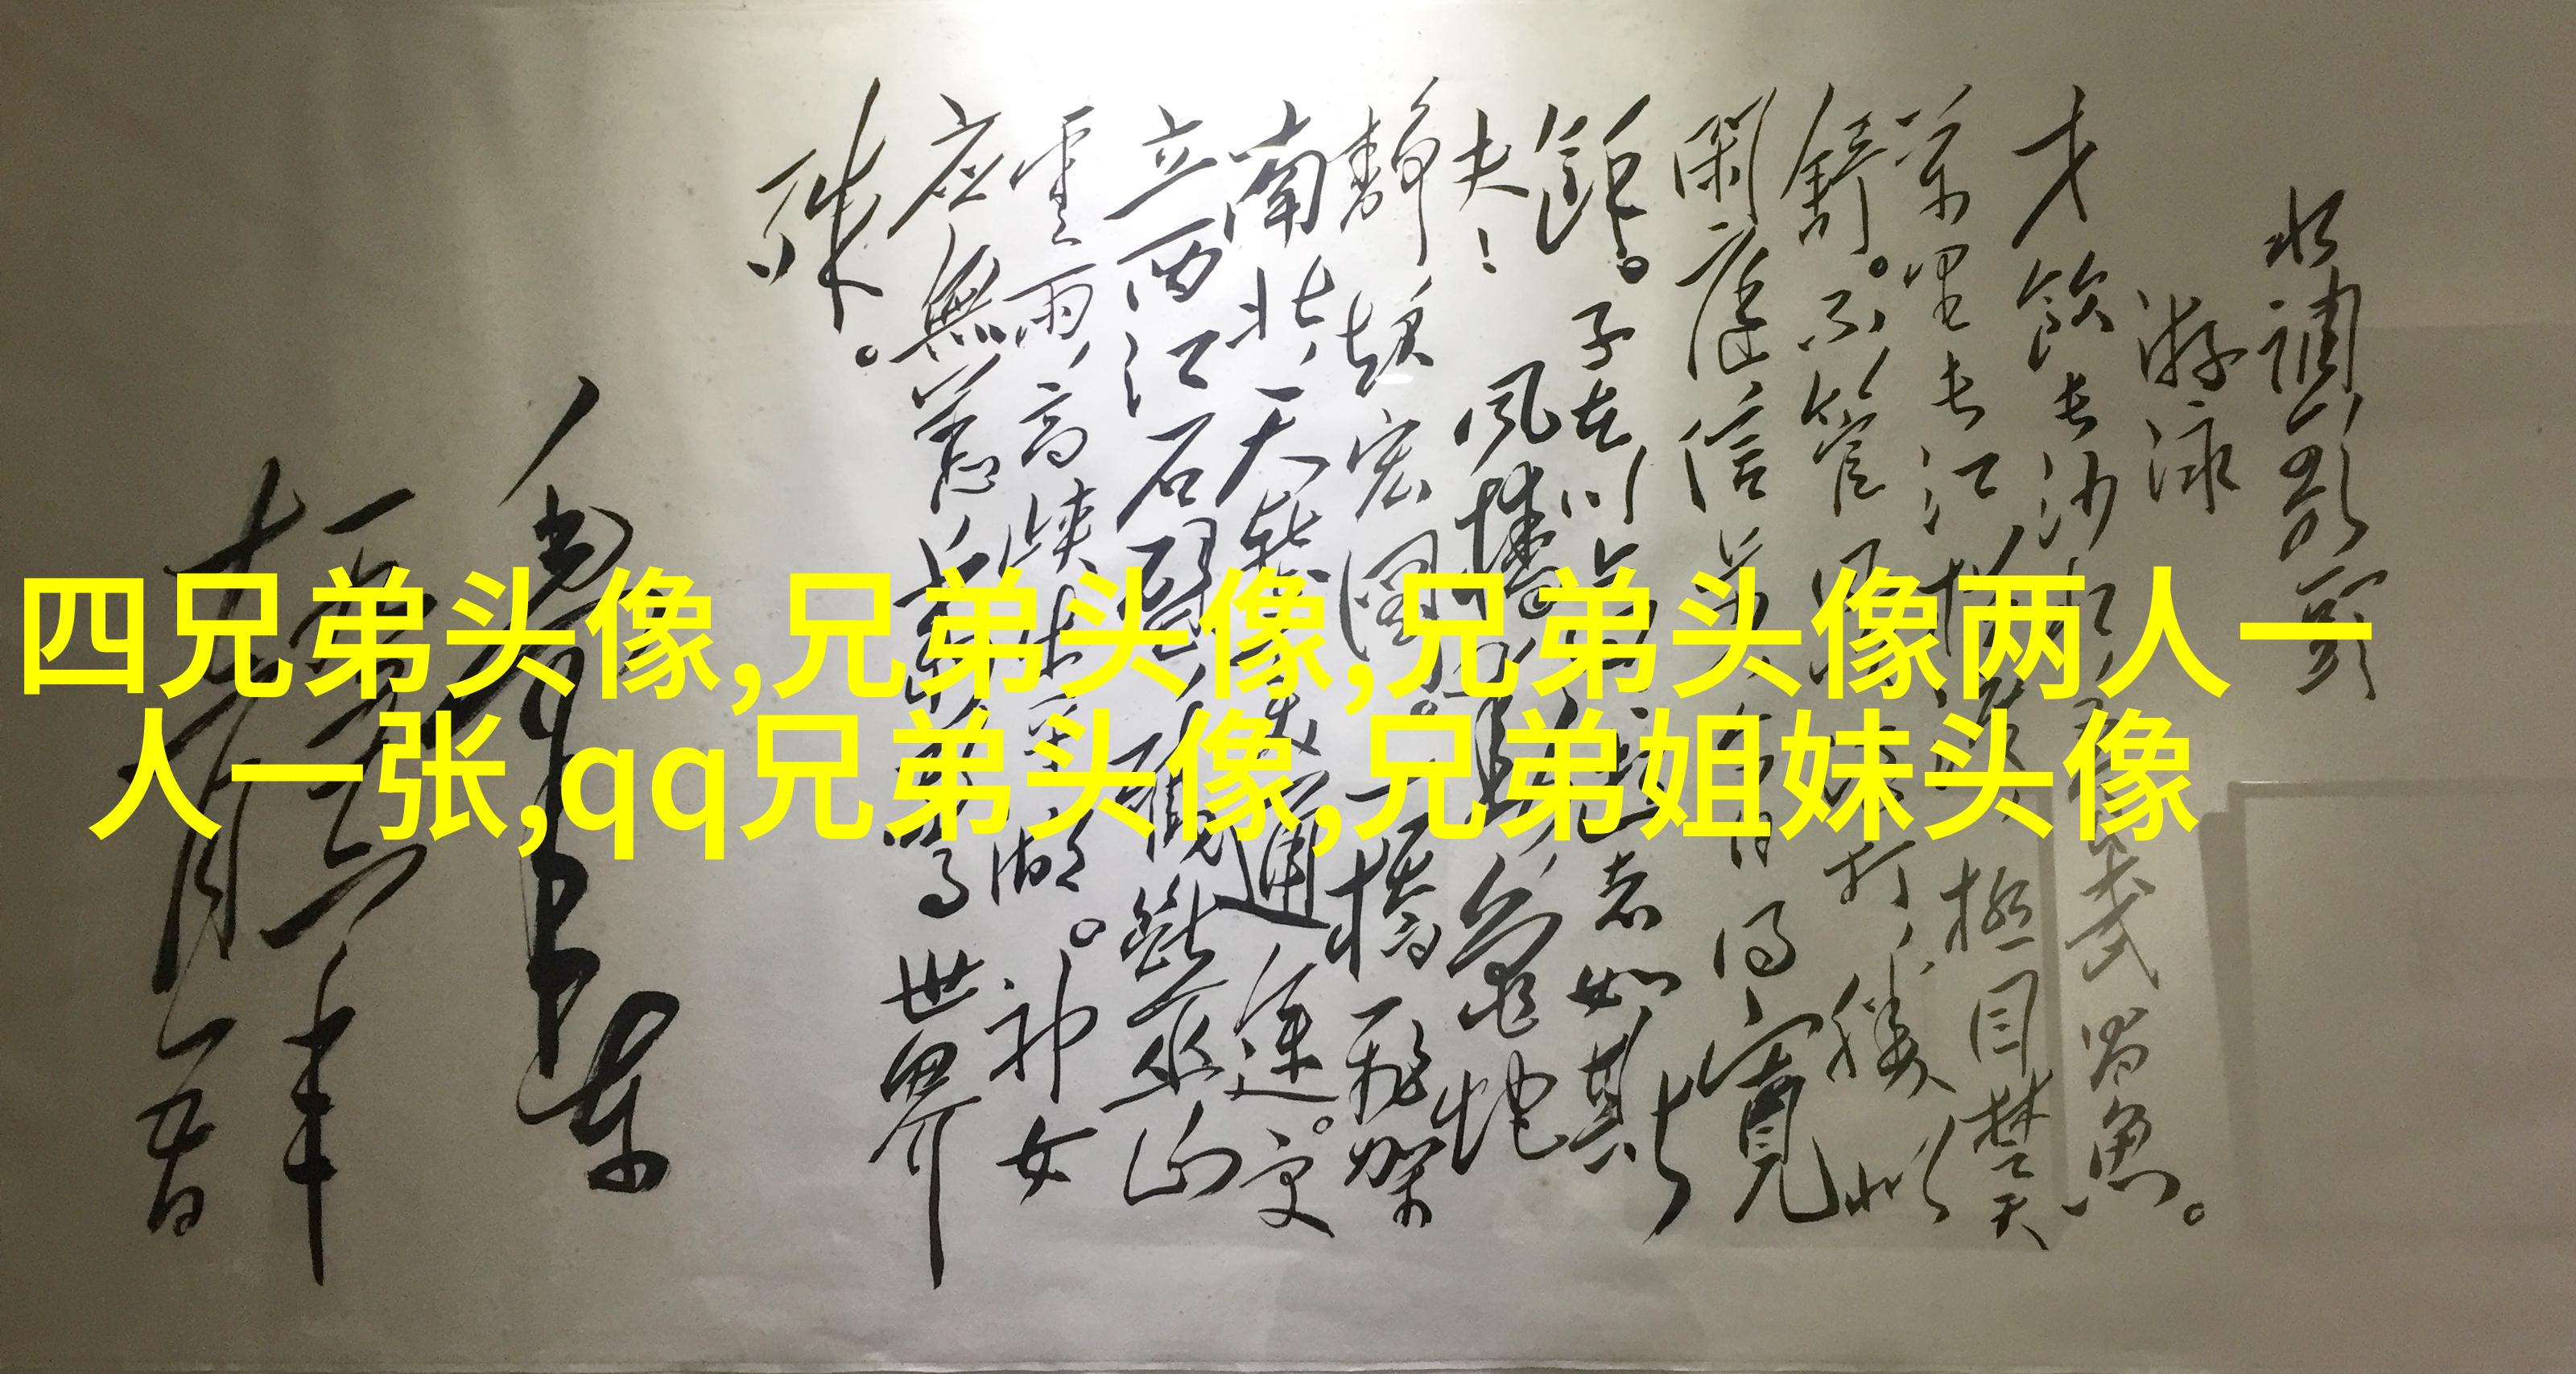 水調歌頭
游泳
才飲長沙水,又食武昌魚。
萬里長江横渡,極目楚天
舒。不管風吹浪打,勝似
閑庭信步,今日得寬
餘。子在川上曰:逝者如斯
夫!風樯動,龜蛇
静,起宏圖。一橋飛架
南北,天塹变通途。更
立西江石壁,截斷巫山
雲雨,高峡出平湖。神女
应無恙,当惊世界
殊。
毛泽东
一九五六年
十二月五日
四兄弟头像,兄弟头像,兄弟头像两人一
人一张,qq兄弟头像,兄弟姐妹头像